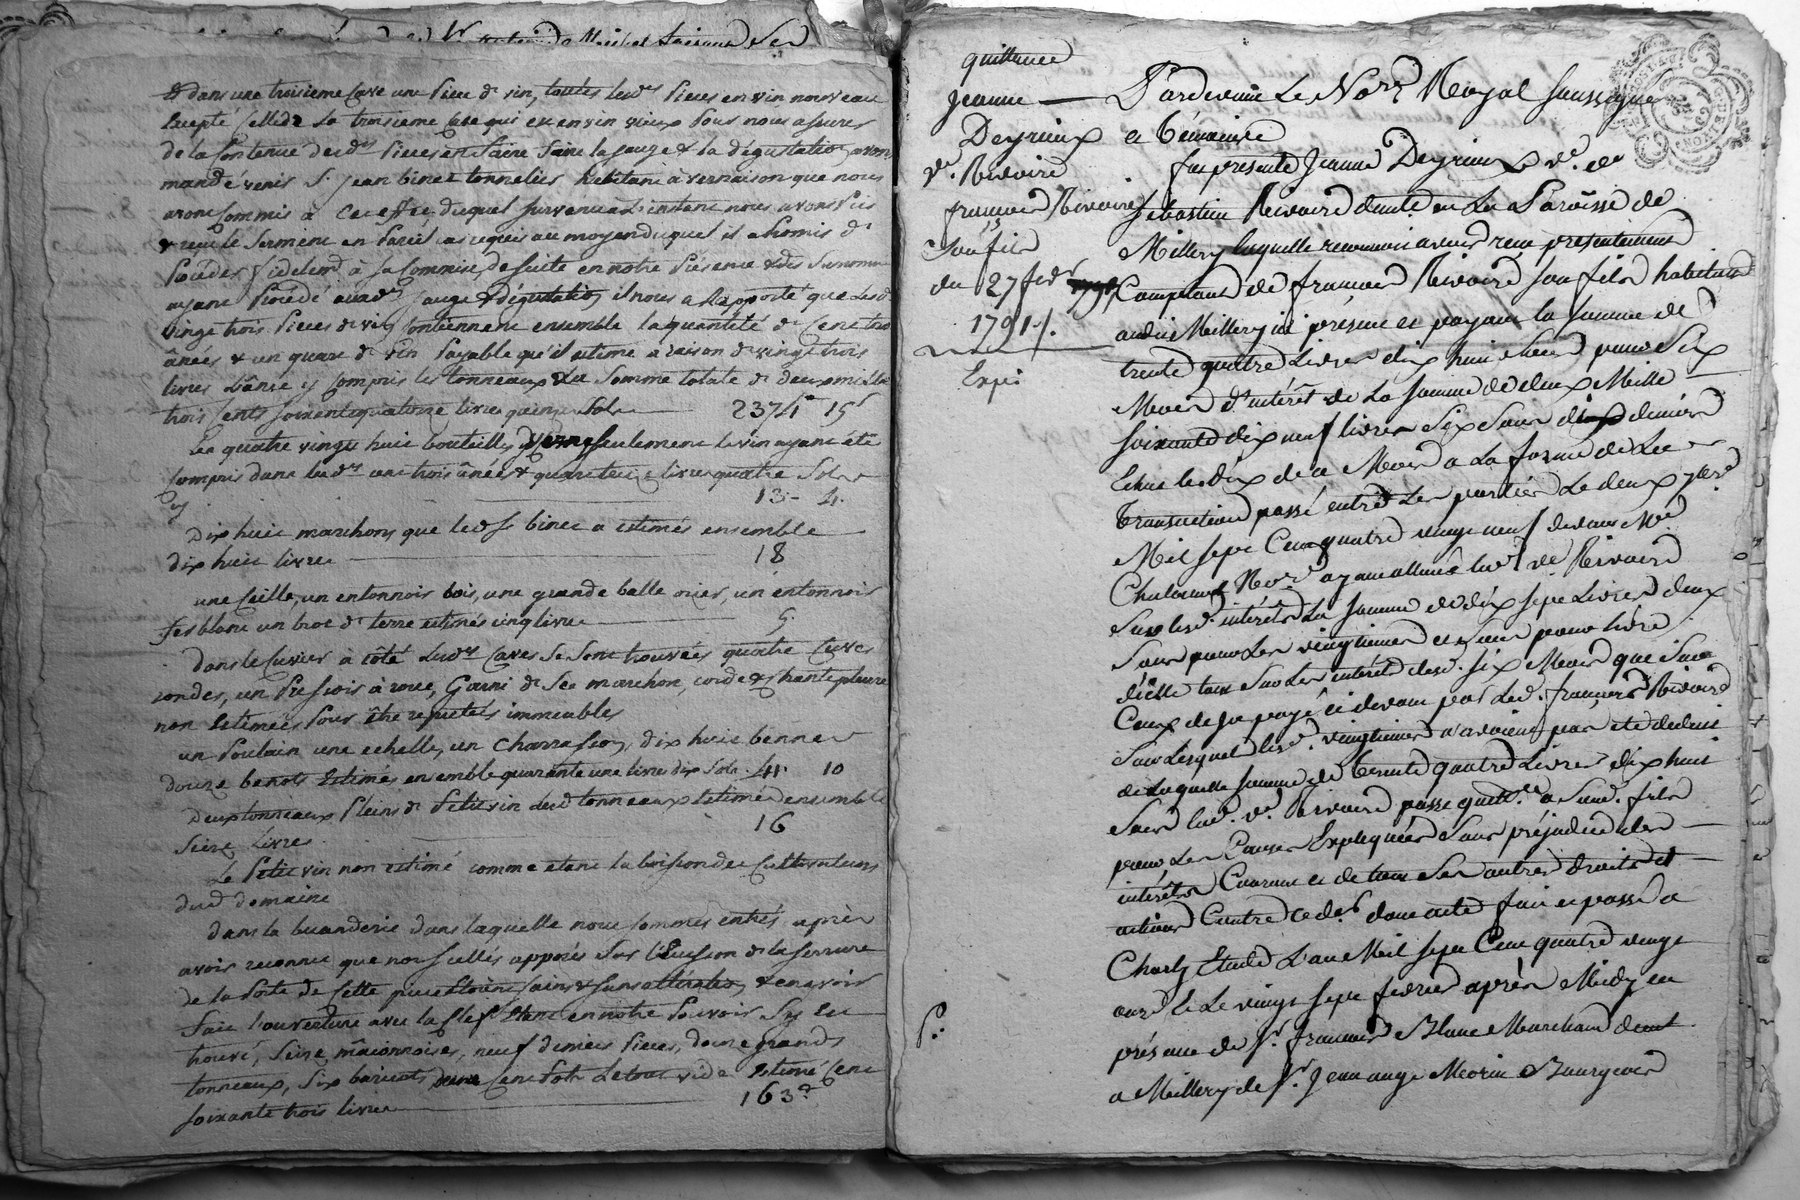 dans une troisieme Cave une Piece de vin, toutes lesd. Pieces en vin nouveau
Excepté Celle de la troisieme Cave qui est en vin vieux Pour nous assurer
de la Contenue desd. Pieces en faire faire la jauge & la dégustation avons
mandé venir S. jean binet tonnelier habitant à vernaison que nous
avons Commis à Cet effet duquel survenu à l'instant nous avons Pris
& recu le Serment en Pareil cas requis au moyen duquel il a Promis de
Proceder fidelem. à sa Commission de suite en notre Présence
ayant Procédé auxd. jauge & dégustation, il nous a Rapporté que lesd.
vingt trois Pieces de vin Contiennent ensemble la quantité de Cent trois
ânées & un quart de vin Payable qu'il estime a raison de vingt trois
livres L'ânée y Compris les tonneaux & la Somme totale de deux mille
trois Cents soixante quatorze livres quinze Sols 2374 15
Les quatre vingt huit bouteilles Verre seulement le vin ayant été
Compris dans lesd. cent trois ânées & quart treize livres quatre Sols
y 13 4
Dix huit marchons que led. S. binet a estimés ensemble
dix huit livres 18
une seille, un entonnoir bois, une grande balle osier, un entonnoir
fer blanc un broc de terre estimés cinq livres 5
dans le Cuvier à côté desd. Caves se sont trouvées quatre Cuves
rondes, un Pressoir à roue, Garni de Son marchon, corde & chantepleure
non Estimés Pour être reputés immeubles
un Poulain une echelle, un Charrasson, dix huit bennes
douze benots Estimés ensemble quarante une livres dix Sols 41 10
deux tonneaux Pleins de Petit vin lesd. tonneaux Estimés ensemble
Seize Livres 16
Le Petit vin non estimé comme etant la boisson des Cultivateurs
dud. domaine
dans la buanderie dans laquelle nous sommes entrés après
avoir reconnu que nos scellés apposés Sur l'Ecusson de la serrure
de la Porte de Cette piece Etoient sains & sans alteration, & en avoir
fait l'ouverture avec la Clef Etant en notre Pouvoir S'y est
trouvé, Seize mâconnoises, neuf demies Pieces, douze grands
tonneaux, Six baricots Le tout vide Estimé Cent
soixante trois livres 163
quittance
Jeanne
Deyrieux
v.e Rivoire
a
françois Rivoire
Son fils
du 27 fevr
1791
Expé
Pardevant Le No.re Royal soussigné
et témoins
fut présente Jeanne Deyrieux v.e de
Sébastien Rivoire demt. en La Paroisse de
Millery laquelle reconnoit avoir reçu présentement
Comptant de françois Rivoire son fils habitant
audit Millery ici présent et payant la somme de
trente quatre Livres dix huit sous pour Six
Mois d'intérêt de La somme de deux Mille
soixante dix neuf livres Six Sous deniers
Echus les dix de ce Mois a La forme de La
transaction passé entre Les parties Le deux 7bre
Mil sept Cent quatre vingt neuf devant Me
No.re ayant led. Rivoire
Sur lesd. intérêts La somme de dix sept Livres deux
Sous pour Les vingtiemes et sous pour livre
d'icelle tant Sur Les intérêts desd. six Mois que Sur
Ceux deja payé ci devant par Led. françois Rivoire
Sur Lesquels lesd. vingtiemes n'avoient pas eté deduit
de Laquelle somme de trente quatre Livres dix huit
Sous lad. v.e Rivoire passe quitt.ce a Sond. fils
pour Les Causes Expliquées Sans préjudice des
intérêts Courant et de tous Ses autres droits et
actions Contre dont acte fait et passé a
Charly Etude L'an Mil sept Cent quatre vingt
onze Le vingt sept fevrier après Midy en
présence de S.r françois Blanc Marchand demt.
a Millery de S.r Jean ange Morin Bourgeois